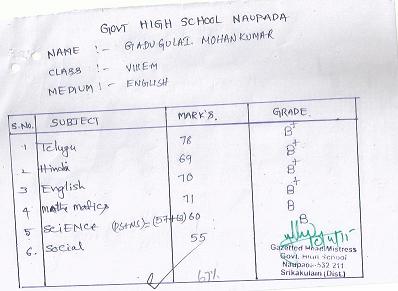 GOVT HIGH SCHOOL NAUPADA
NAME :- GADUGULAI. MOHANKUMAR
CLASS :- VIREM
MEDIUM :- ENGLISH
S.No. SUBJECT MARK'S. GRADE.
1 Telugu 78 B+
2 Hindi 69 B+
3 English 70 B+
4 mathematics 71 B+
5 SCIENCE (PS+NS)= 60 B
6. Social 55 B
Gazetted HeadMistress
Govt. High School
Naupada-532 211
Srikakulam (Dist.)
67%